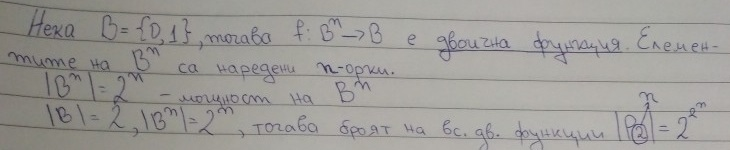 Нека B = {0,1}, тогава f: Bⁿ → B е двоична функция. Елемен-
тите на Bⁿ са наредени n-орки.
|Bⁿ| = 2ⁿ - мощност на Bⁿ
|B| = 2, |Bⁿ| = 2ⁿ, тогава броят на вс. дв. функции |P₂ⁿ| = 2^2ⁿ